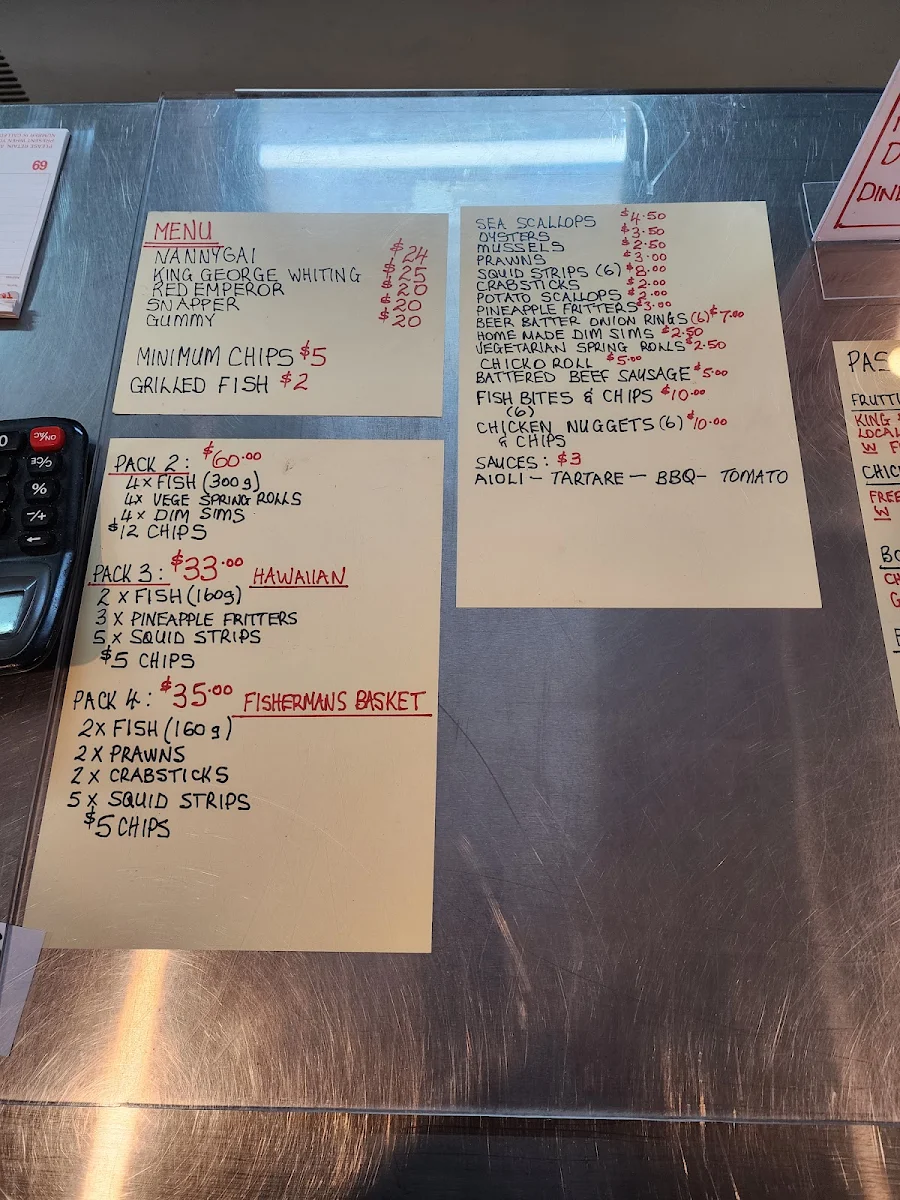 MENU
NANNYGAI $24
KING GEORGE WHITING $25
RED EMPEROR $20
SNAPPER $20
GUMMY $20
MINIMUM CHIPS $5
GRILLED FISH $2
PACK 2: $60.00
4X FISH (300g)
4X VEGE SPRING ROLLS
4X DIM SIMS
$12 CHIPS
PACK 3: $33.00 HAWAIIAN
2 X FISH (160g)
3 X PINEAPPLE FRITTERS
5 X SQUID STRIPS
$5 CHIPS
PACK 4: $35.00 FISHERMANS BASKET
2X FISH (160g)
2X PRAWNS
2X CRABSTICKS
5 X SQUID STRIPS
$5 CHIPS
SEA SCALLOPS $4.50
OYSTERS $3.50
MUSSELS $2.50
PRAWNS $3.00
SQUID STRIPS (6) $8.00
CRABSTICKS $2.00
POTATO SCALLOPS $2.00
PINEAPPLE FRITTERS $3.00
BEER BATTER ONION RINGS (6) $7.00
HOME MADE DIM SIMS $2.50
VEGETARIAN SPRING ROLLS $2.50
CHICKO ROLL $5.00
BATTERED BEEF SAUSAGE $5.00
FISH BITES & CHIPS $10.00
(6)
CHICKEN NUGGETS (6) $10.00
& CHIPS
SAUCES: $3
AIOLI - TARTARE - BBQ - TOMATO
69
ON/AC
C/CE
%
+/-
0
PAS
KING
LOCAL
W F
CHIC
FREE
W